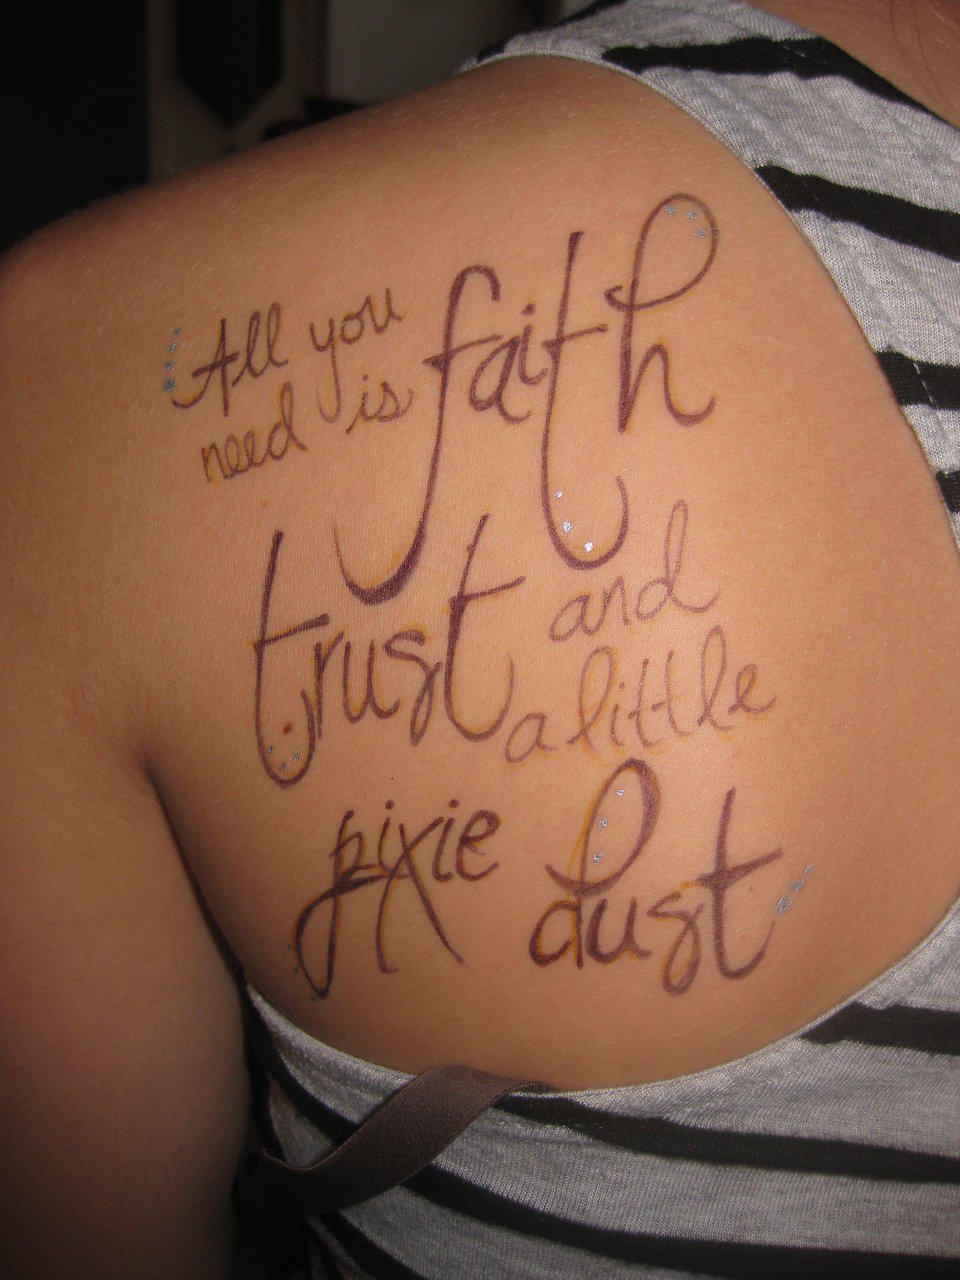 All you
need is faith
trust and
a little
pixie dust